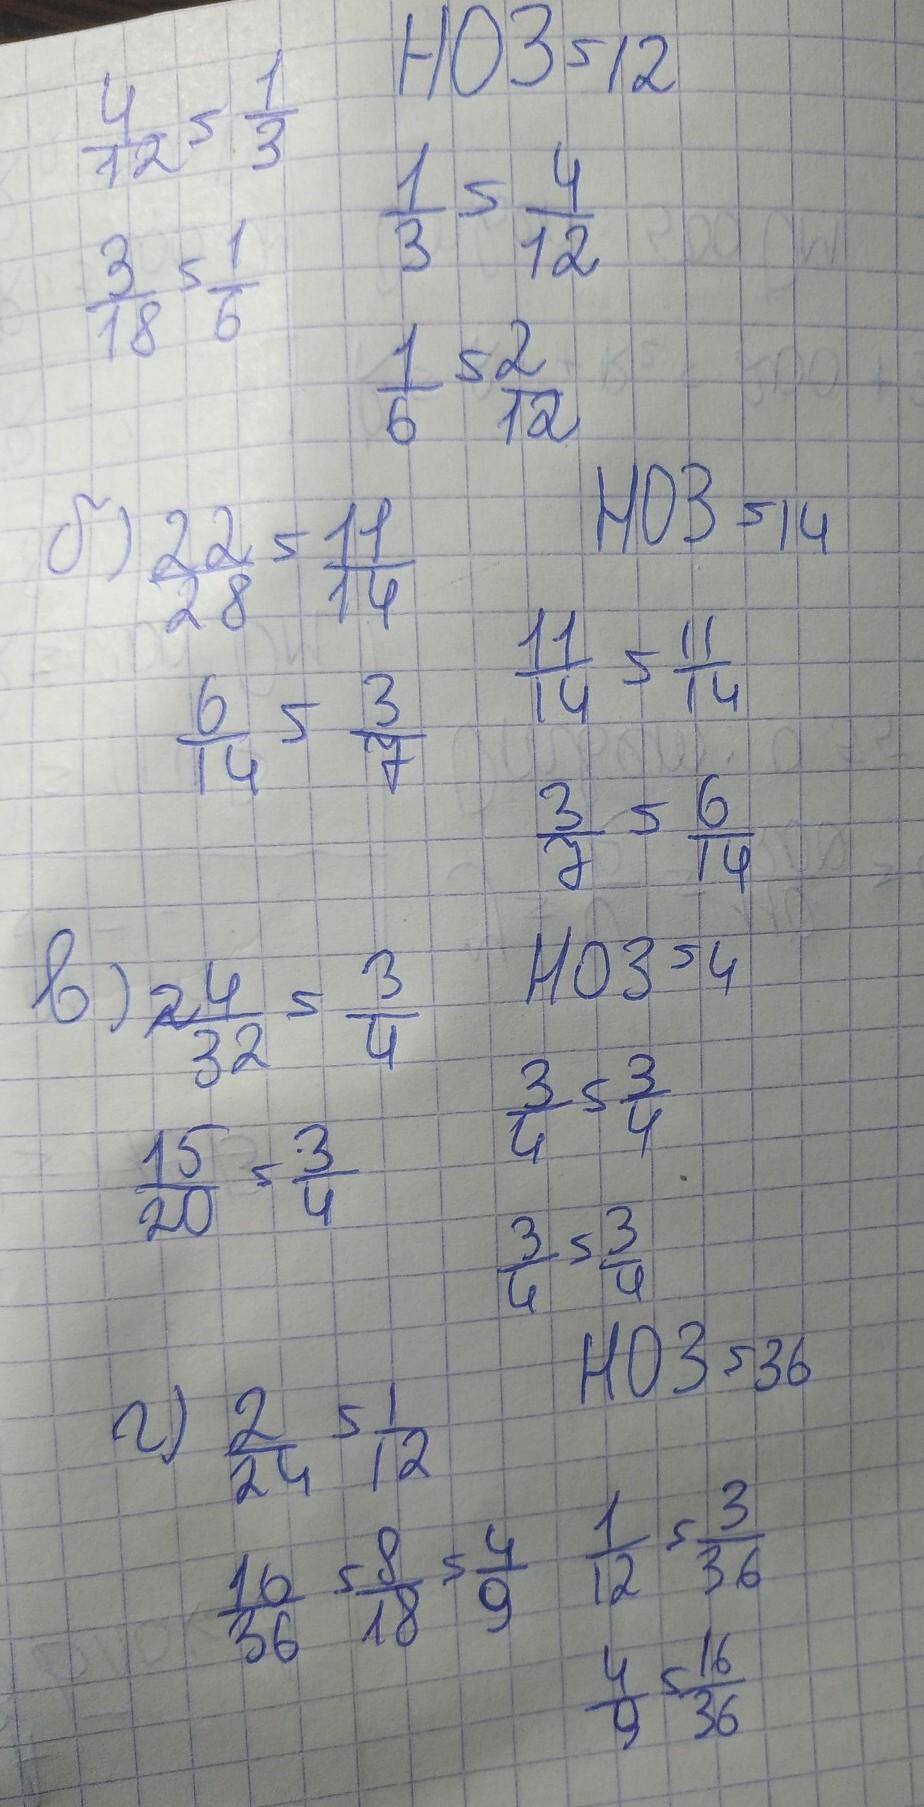 4/12 = 1/3
НОЗ = 12
3/18 = 1/6
1/3 = 4/12
1/6 = 2/12
б) 22/28 = 11/14
НОЗ = 14
6/14 = 3/7
11/14 = 11/14
3/7 = 6/14
в) 24/32 = 3/4
НОЗ = 4
15/20 = 3/4
3/4 = 3/4
3/4 = 3/4
г) 2/24 = 1/12
НОЗ = 36
16/36 = 8/18 = 4/9
1/12 = 3/36
4/9 = 16/36